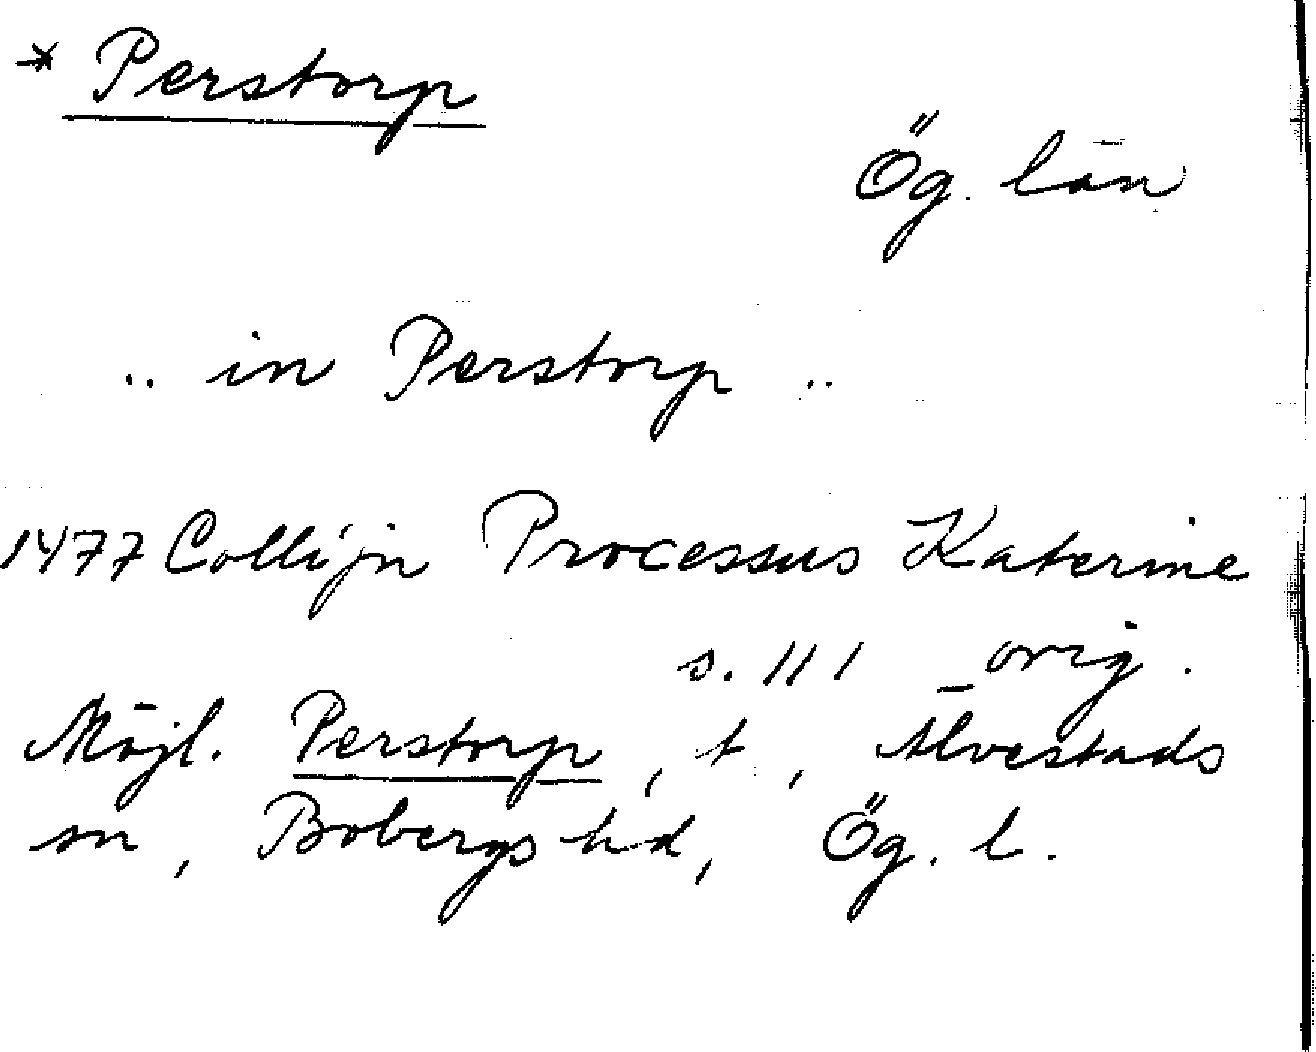 * Perstorp
Ög. län
.. in Perstorp ..
1477 Collijn Processus Katerine
s. 111 orig.
Möjl. Perstorp, t., Älvestads
sn, Bobergs hd, Ög. l.